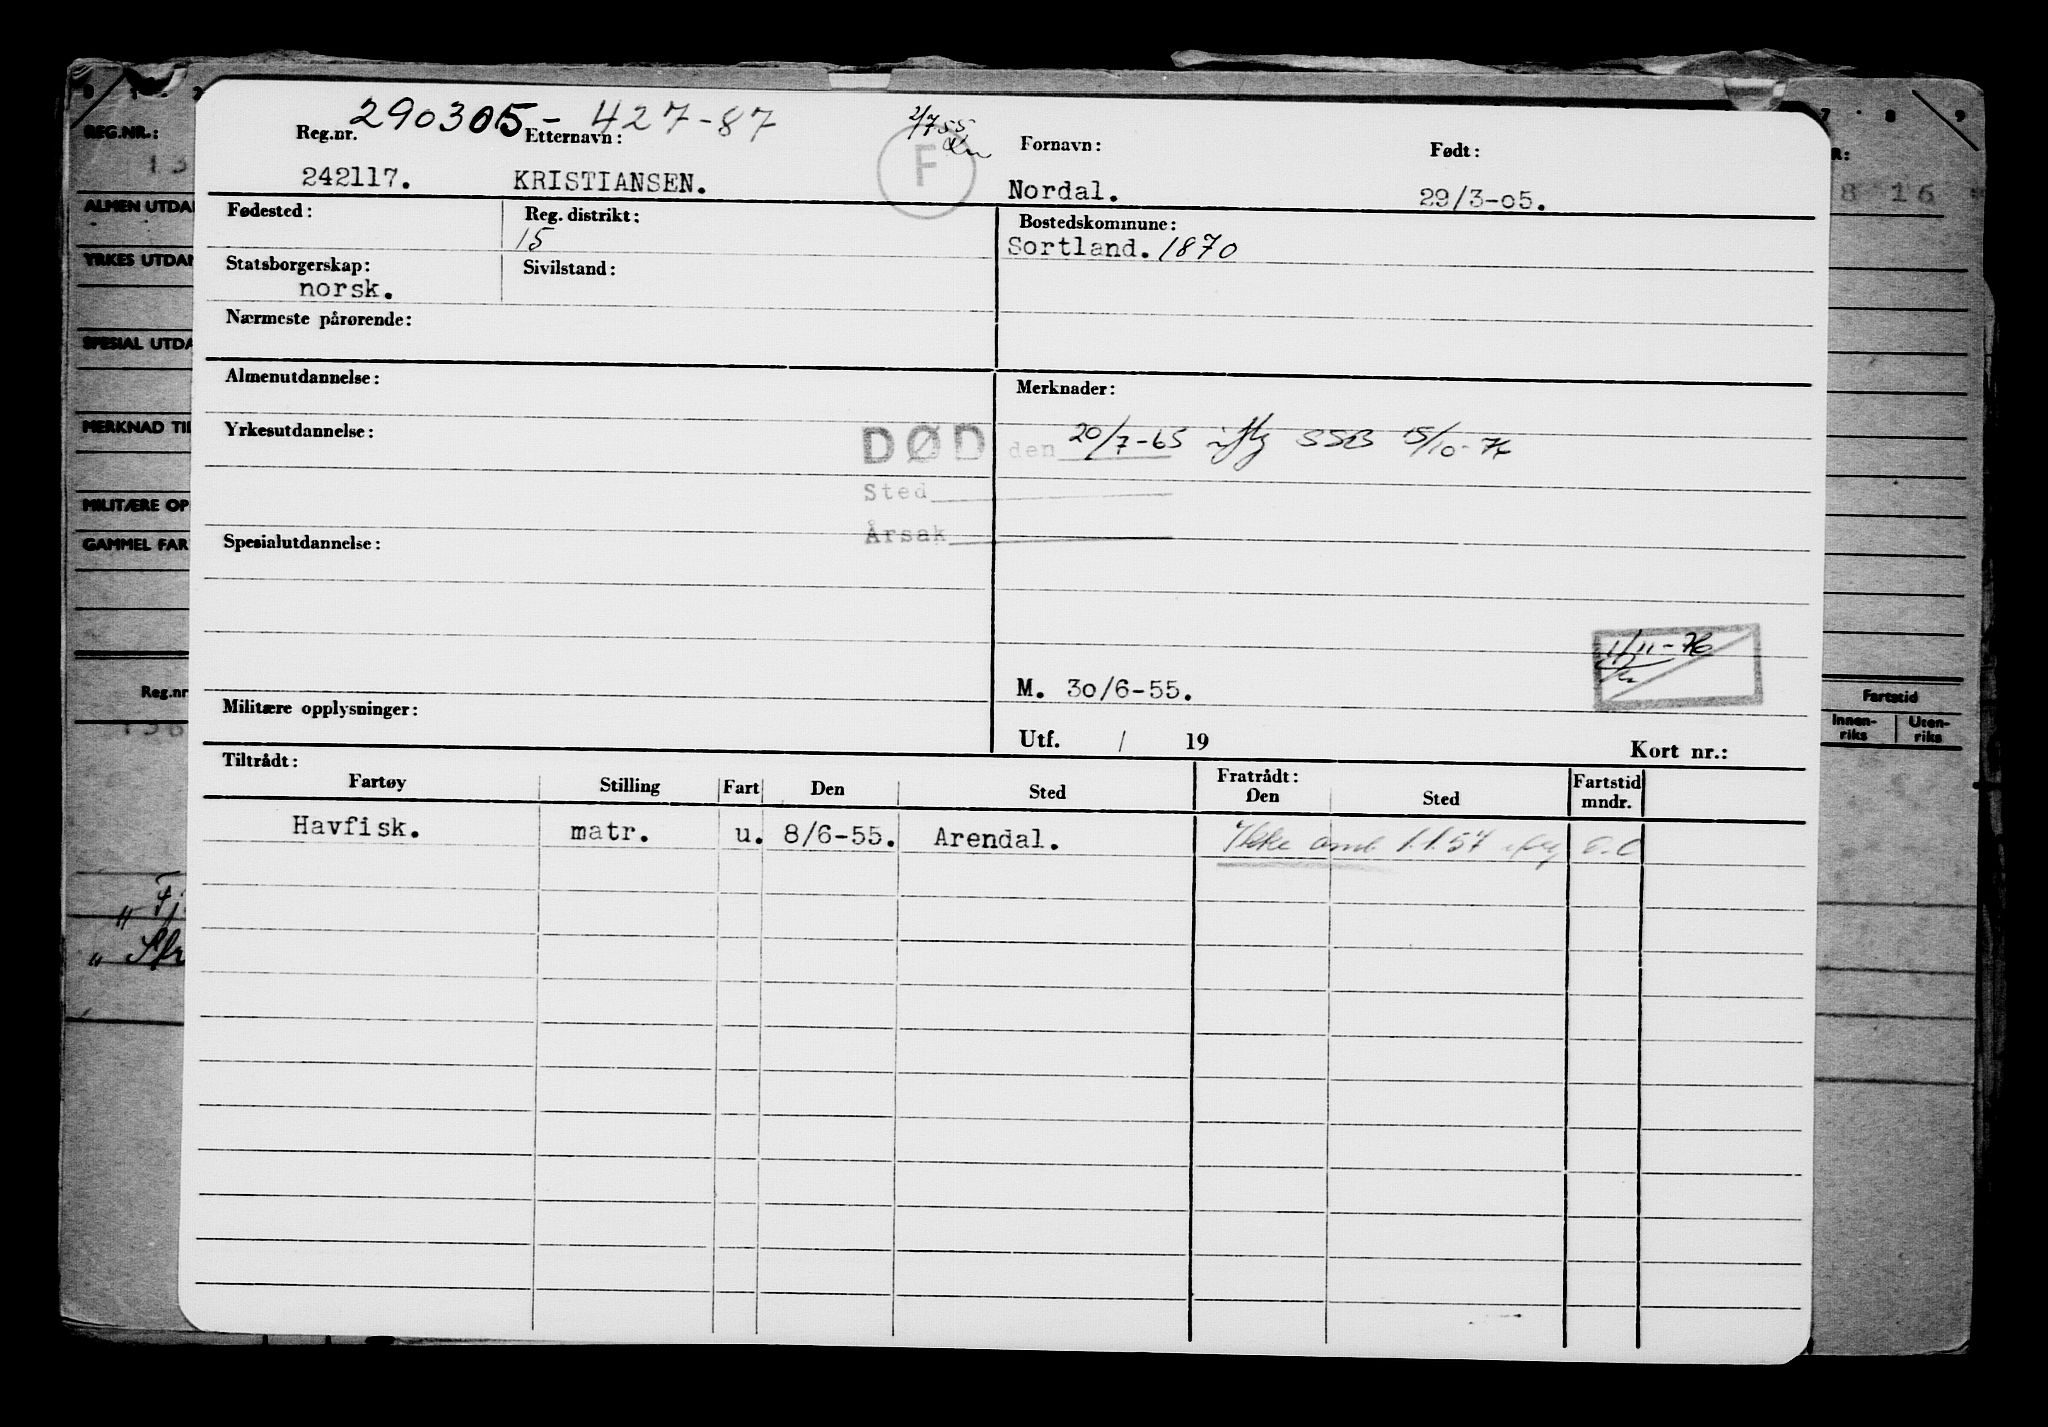 290305-427-87
2/7 55
Reg.nr. Etternavn: Fornavn: Født:
242117. KRISTIANSEN. F Nordal. 29/3-05.
Fødested: Reg. distrikt: Bostedskommune:
15 Sortland. 1870
Statsborgerskap: Sivilstand:
norsk.
Nærmeste pårørende:
Almenutdannelse: Merknader:
Yrkesutdannelse: DØD den 20/7-65 iflg SSB 15/10-76
Sted
Årsak
Spesialutdannelse:
11/11-76
M. 30/6-55.
Militære opplysninger:
Utf. / 19 Kort nr.:
Tiltrådt: Fratrådt: Fartstid
Fartøy Stilling Fart Den Sted Den Sted mndr.
Havfisk. matr. u. 8/6-55. Arendal. Ikke omb 1.1.57 iflg E.C
REG.NR.:
13
ALMEN UTDA
YRKES UTDAN
SPESIAL UTDA
MERKNAD TIL
MILITÆRE OP
GAMMEL FAR
Reg.nr
136
" Fj
" Sp
7 · 8 · 9
R:
8 16
Fartstid
Innen- Uten-
riks riks